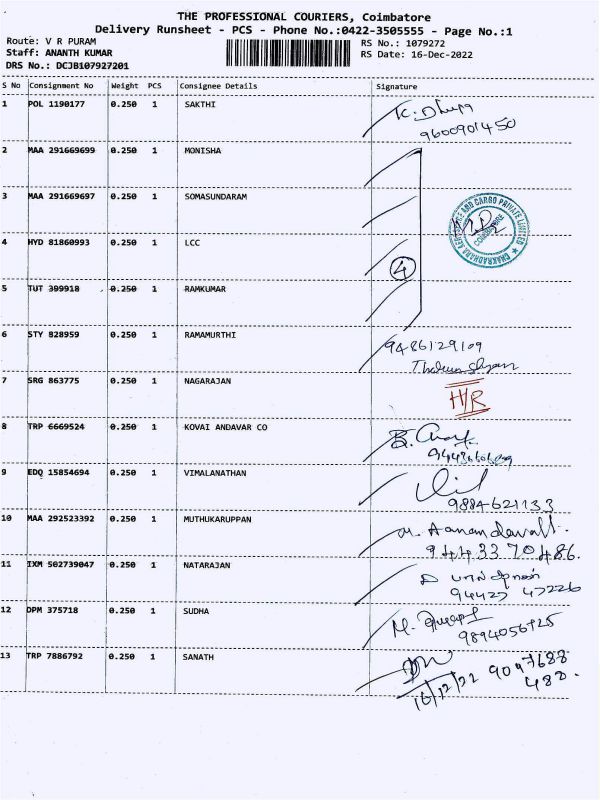 THE PROFESSIONAL COURIERS, Coimbatore
Delivery Runsheet - PCS - Phone No.:0422-3505555 - Page No.:1
Route: V R PURAM
RS No.: 1079272
Staff: ANANTH KUMAR
RS Date: 16-Dec-2022
DRS No.: DCJB107927201
S No Consignment No Weight PCS Consignee Details Signature
1 POL 1190177 0.250 1 SAKTHI
9600901450
2 MAA 291669699 0.250 1 MONISHA
3 MAA 291669697 0.250 1 SOMASUNDARAM
4 HYD 81860993 0.250 1 LCC
4
5 TUT 399918 0.250 1 RAMKUMAR
6 STY 828959 0.250 1 RAMAMURTHI 9486129109
7 SRG 863775 0.250 1 NAGARAJAN H/R
8 TRP 6669524 0.250 1 KOVAI ANDAVAR CO
9 EDQ 15854694 0.250 1 VIMALANATHAN
9884621133
10 MAA 292523392 0.250 1 MUTHUKARUPPAN
9443370486.
11 IXM 502739047 0.250 1 NATARAJAN
94427 47226
12 DPM 375718 0.250 1 SUDHA
9894056925
13 TRP 7886792 0.250 1 SANATH
16/12/22 9047688
480.